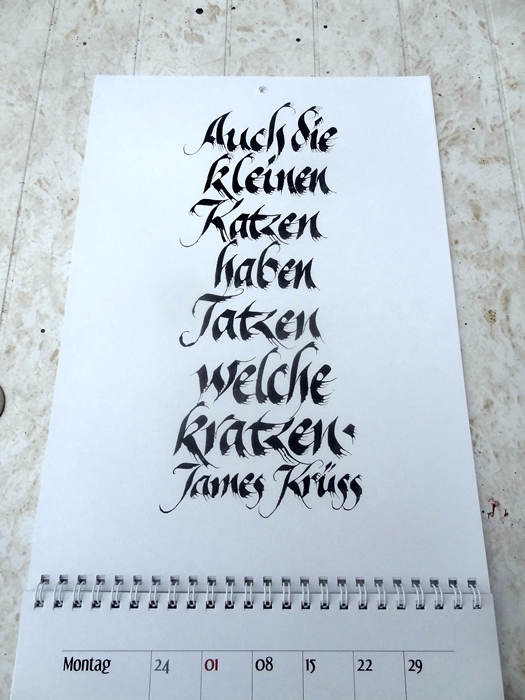 Auch die
kleinen
Katzen
haben
Tatzen
welche
kratzen.
James Krüss
Montag 24 01 08 15 22 29